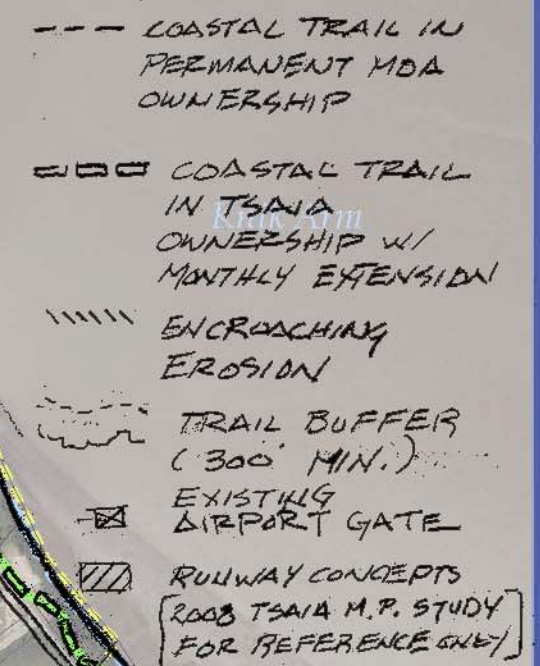 COASTAL TRAIL IN
PERMANENT MOA
OWNERSHIP
COASTAL TRAIL
IN TSAIA
Knik Arm
OWNERSHIP W/
MONTHLY EXTENSION
ENCROACHING
EROSION
TRAIL BUFFER
(300' MIN.)
EXISTING
AIRPORT GATE
RUNWAY CONCEPTS
[2008 TSAIA M.P. STUDY
FOR REFERENCE ONLY]